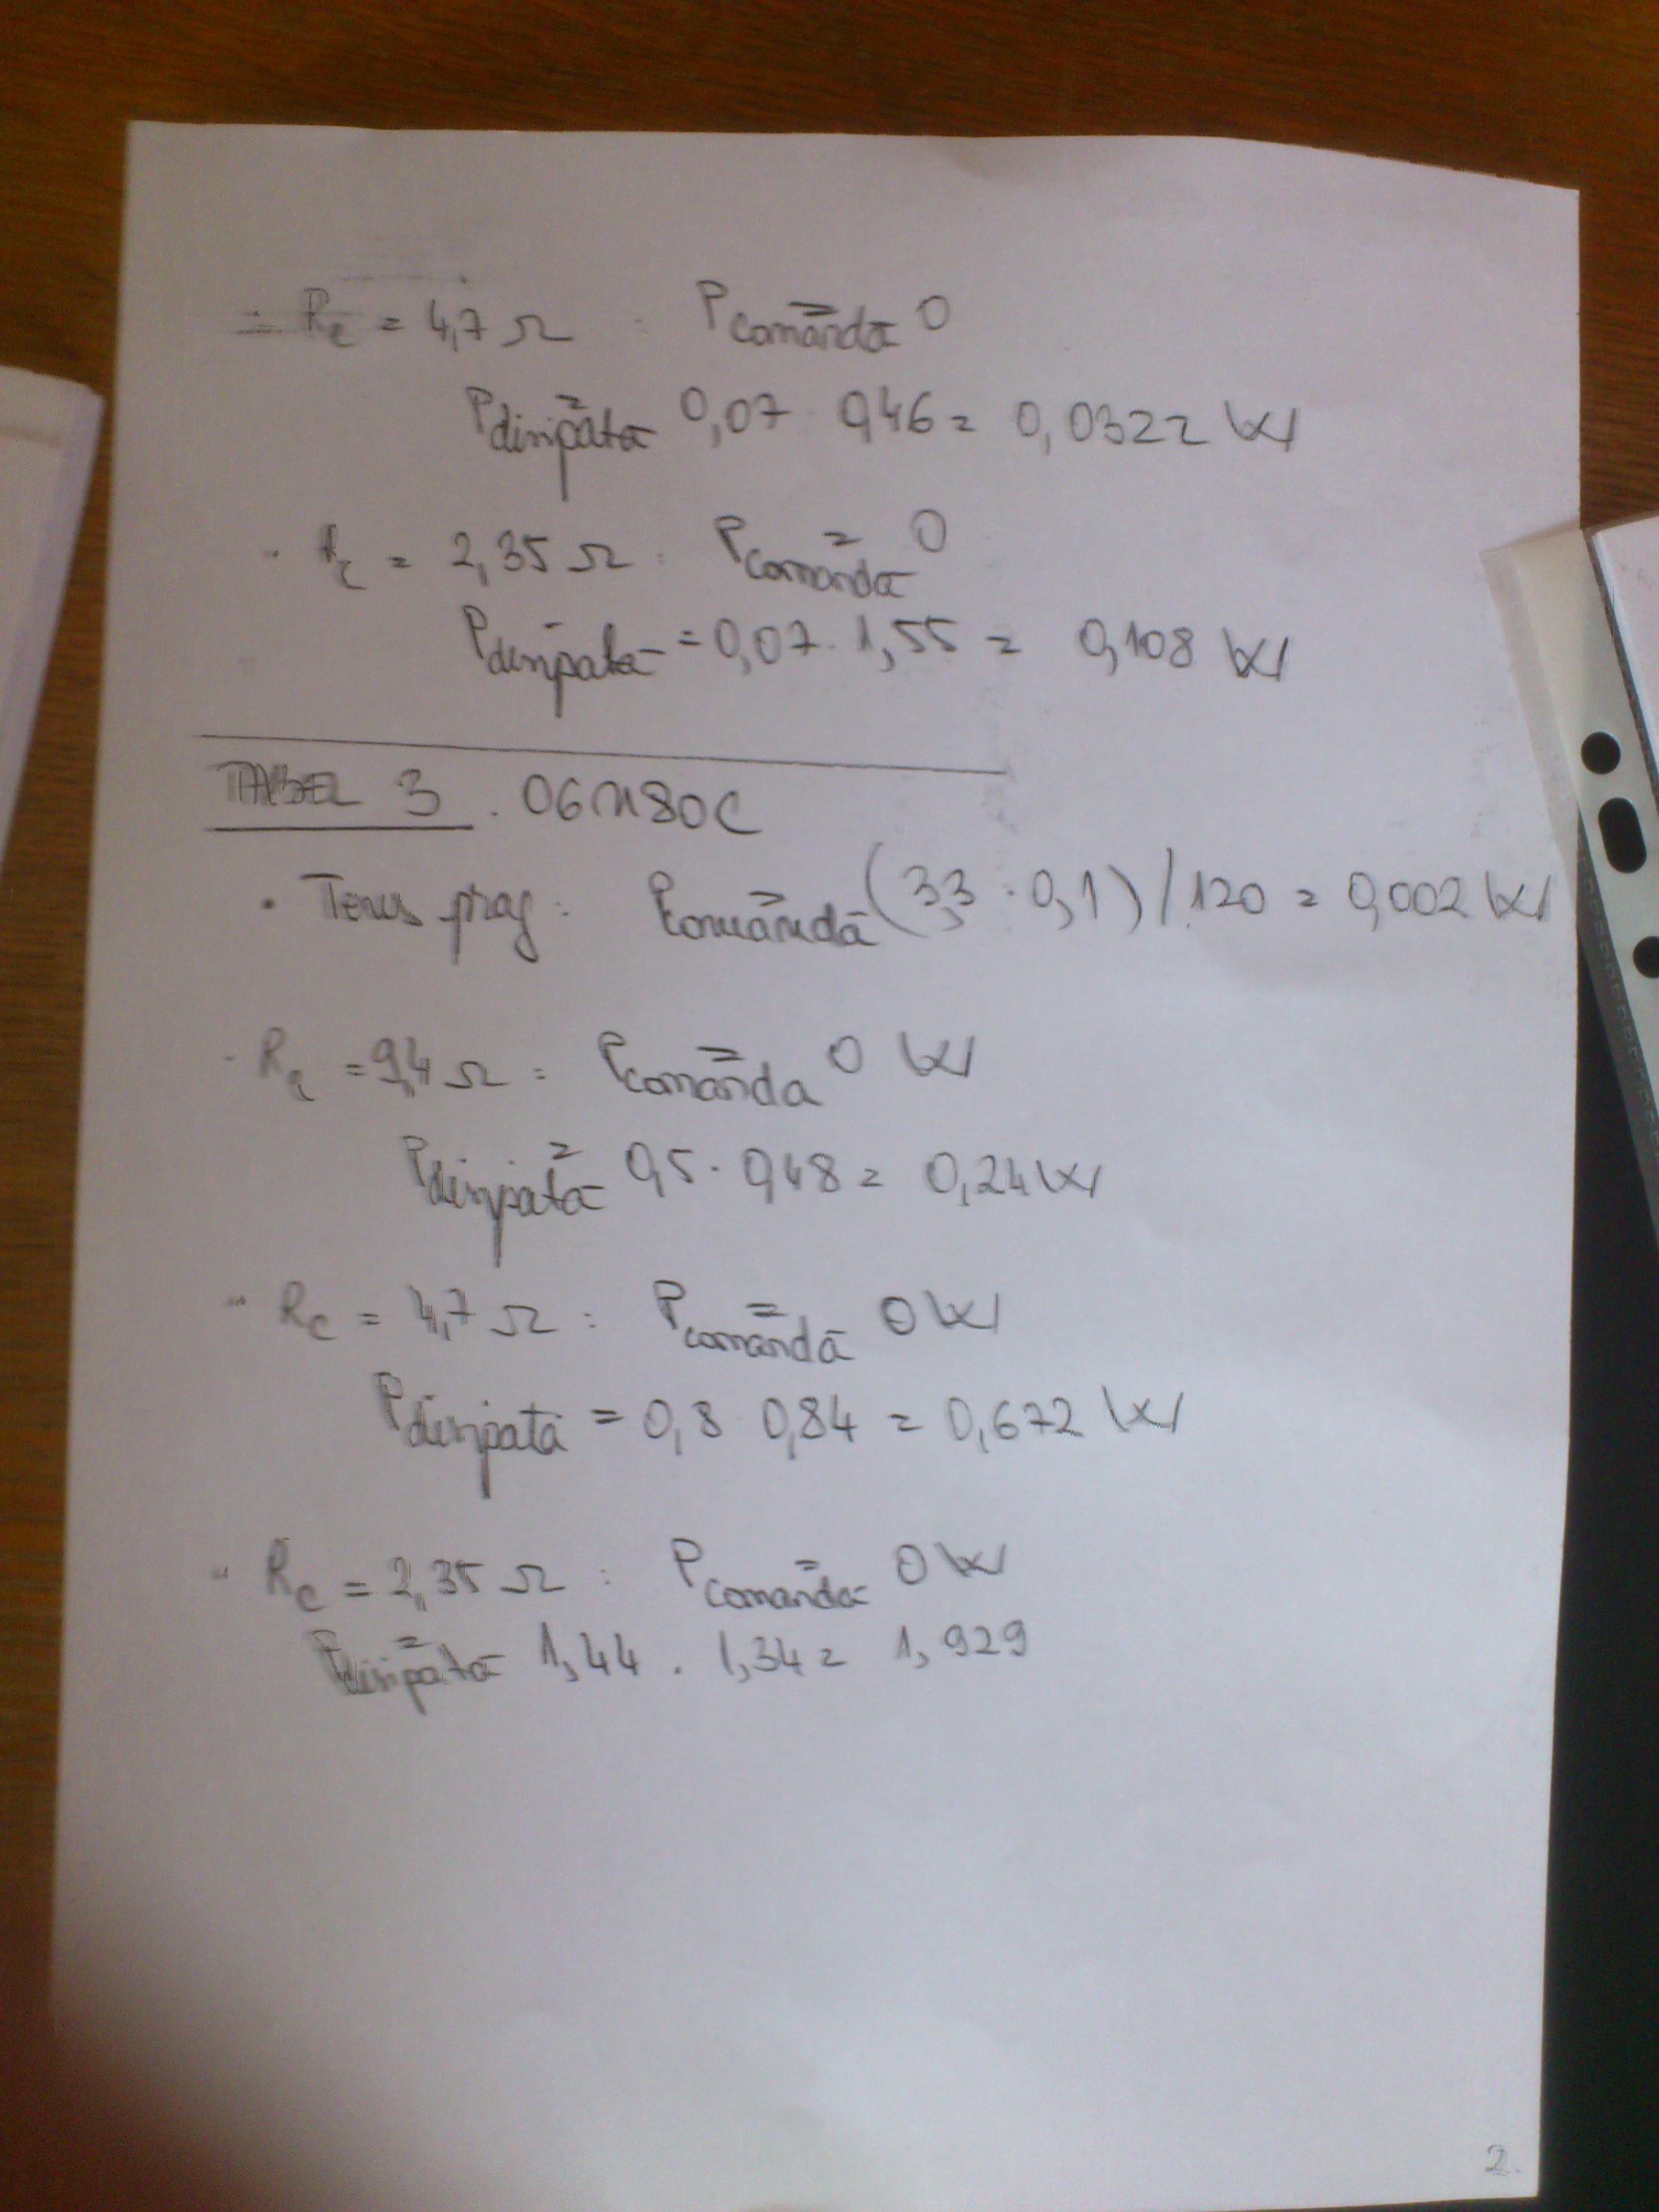 - Rc = 4,7 Ω : Pcomandă = 0
Pdisipată = 0,07 · 0,46 = 0,0322 W
- Rc = 2,35 Ω : Pcomandă = 0
Pdisipată = 0,07 · 1,55 = 0,108 W
TABEL 3. 06N80C
• Tens prag : Pcomandă = (3,3 · 0,1) / 120 = 0,002 W
- Rc = 9,4 Ω : Pcomanda = 0 W
Pdisipată = 0,5 · 0,48 = 0,24 W
- Rc = 4,7 Ω : Pcomandă = 0 W
Pdisipată = 0,8 · 0,84 = 0,672 W
- Rc = 2,35 Ω : Pcomandă = 0 W
Pdisipată = 1,44 . 1,34 = 1,929
2.